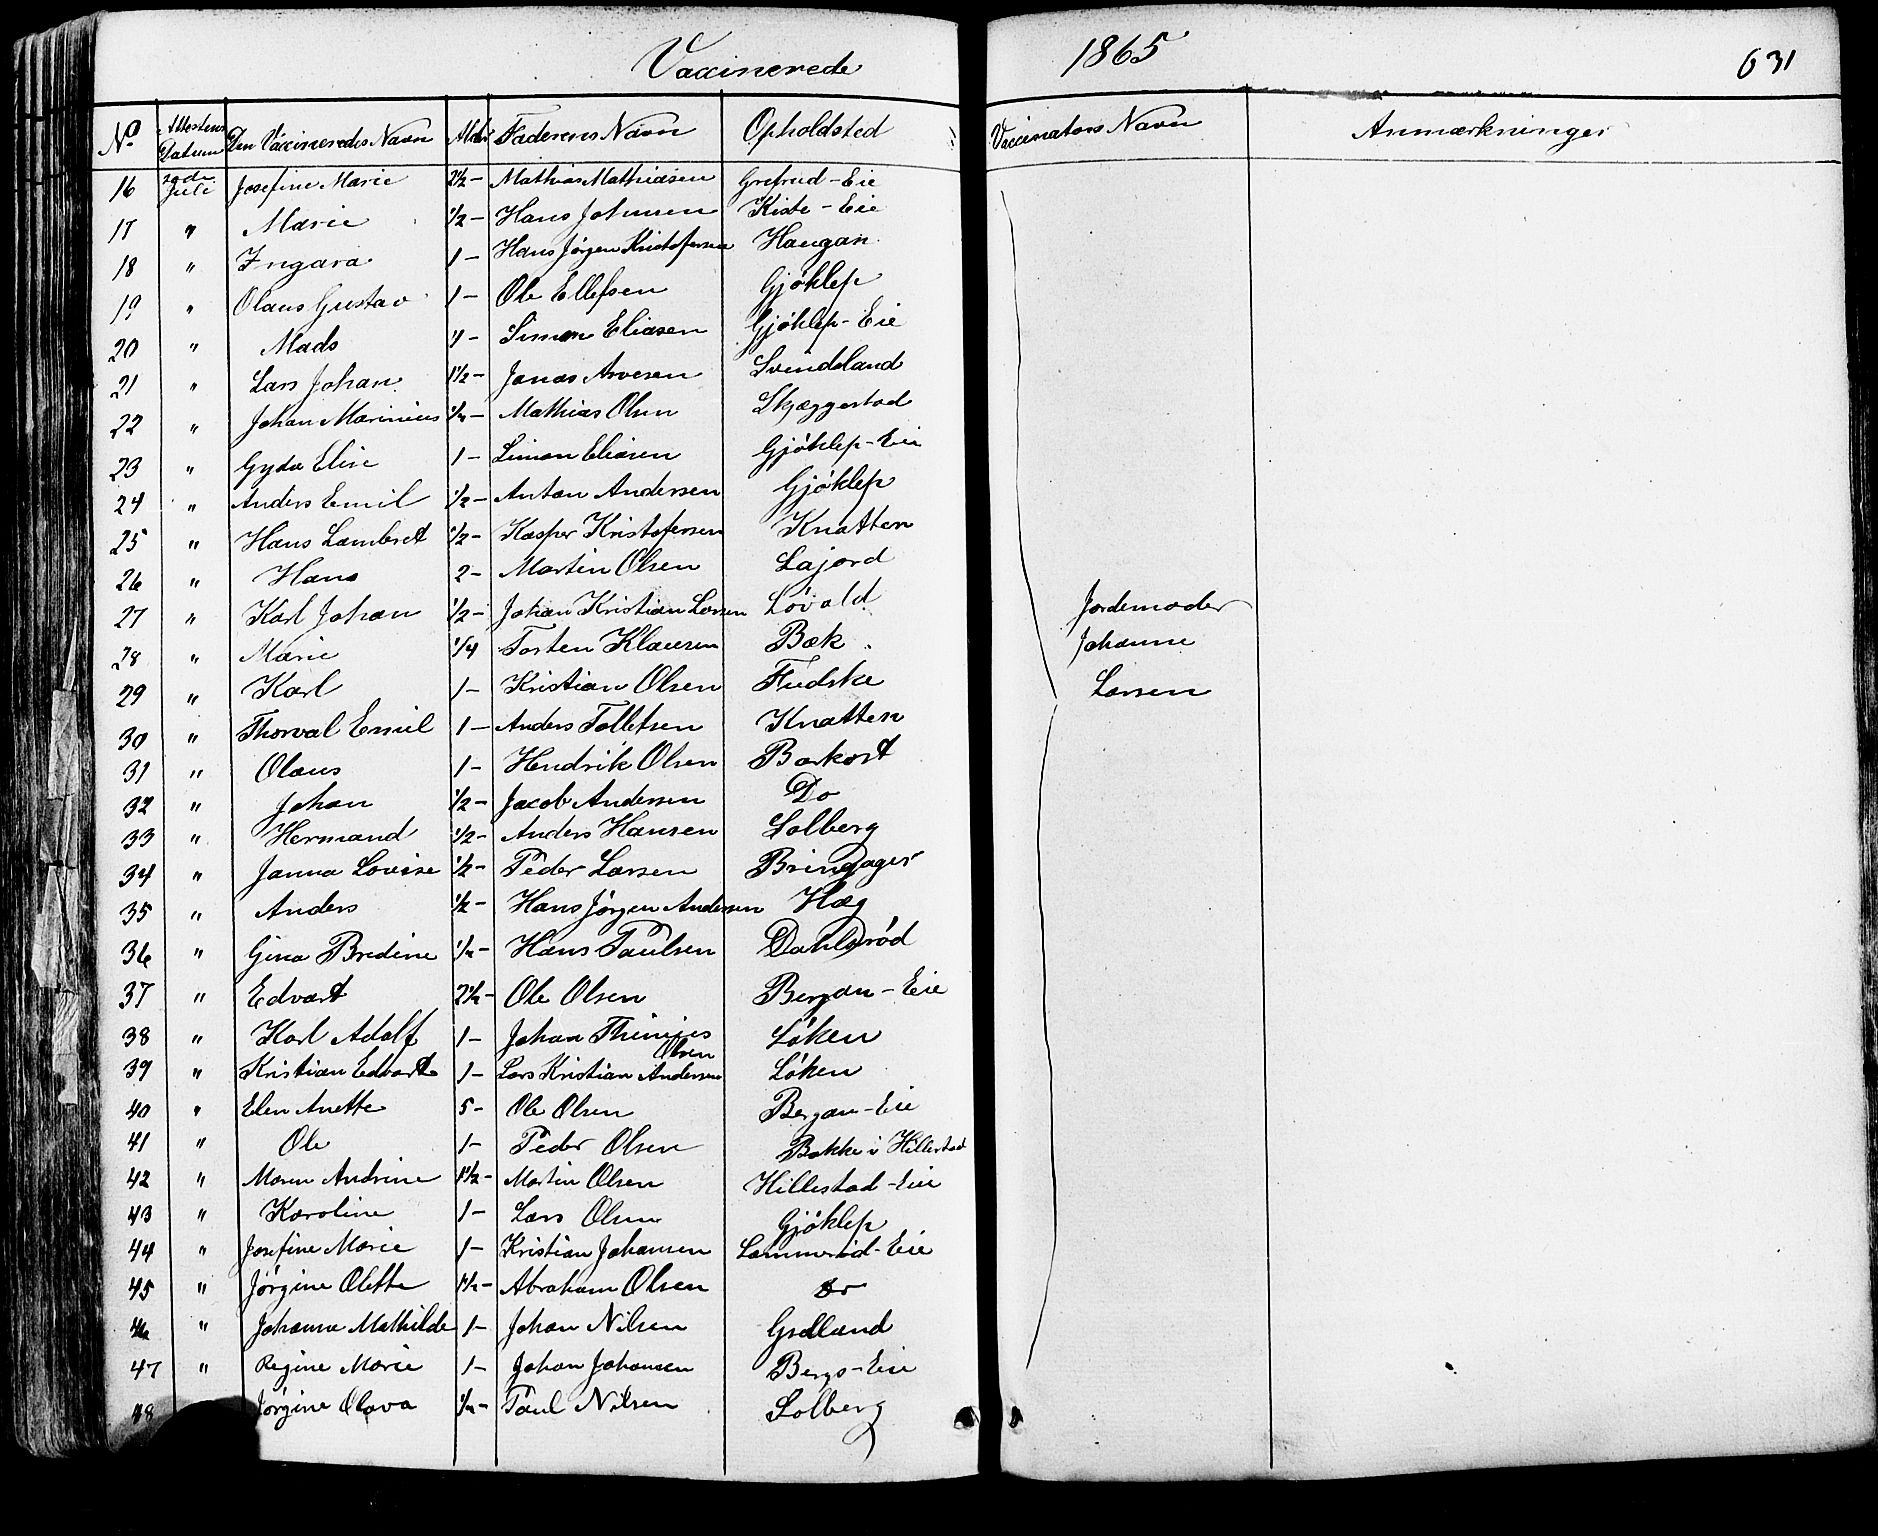 Vaccinerede 1865 631
No Attestens Datum Den Vaccineredes Navn Alder Faderens Navn Opholdsted Vaccinators Navn Anmærkninger
16 Juli Josefine Marie 2½ - Mathias Mathiasen Grefsrud - Eie
17 " Marie ½ - Hans Johnsen Kiste - Eie
18 " Ingara 1 - Hans Jørgen Kristofersen Haugan
19 " Olaus Gustav 1 - Ole Ellefsen Gjøklep
20 " Mads " - Simon Eliasen Gjøklep - Eie
21 " Lars Johan 1½ - Jonas Arvesen Svindsland
22 " Johan Marinius ½ - Mathias Olsen Skjæggestad
23 " Gyda Elise 1 - Simon Eliasen Gjøklep - Eie
24 " Anders Emil ½ - Anton Andersen Gjøklep
25 " Hans Lambret ½ - Kasper Kristofersen Knatten
26 " Hans 2 - Martin Olsen Lajord
27 " Karl Johan ½ - Johan Kristian Larsen Løvald Jordemoder
28 " Marie ¼ Torsten Klausen Bæk Johanne
29 " Karl 1 - Kristian Olsen Fudske Larsen
30 " Thorval Emil 1 - Anders Tolletsen Knatten
31 " Olaus 1 - Hendrik Olsen Barkost
32 " Johan ½ - Jacob Andersen Do
33 " Hermand ½ - Anders Hansen Solberg
34 " Janna Lovise ½ - Peder Larsen Bringager
35 " Anders ½ - Hans Jørgen Andersen Hæg
36 " Gina Bredine ½ - Hans Paulsen Dahlsrød
37 " Edvart 2½ - Ole Olsen Bergan - Eie
38 " Karl Adolf 1 - Johan Thinius Olsen Løken
39 " Kristian Edvart 1 - Lars Kristian Andersen Løken
40 " Elen Anette 5 - Ole Olsen Bergan - Eie
41 " Ole 1 - Peder Olsen Bakke i Hillestad
42 " Maren Andrine 1½ - Martin Olsen Hillestad - Eie
43 " Karoline 1 - Lars Olsen Gjøklep
44 " Josefine Marie 1 - Kristian Johansen Lammerød - Eie
45 " Jørgine Olette 1½ - Abraham Olsen Do
46 " Johanne Mathilde 1 - Johan Nilsen Grelland
47 " Regine Marie 1 - Johan Johansen Bergs - Eie
48 Jørgine Olava ½ - Paul Nilsen Solberg